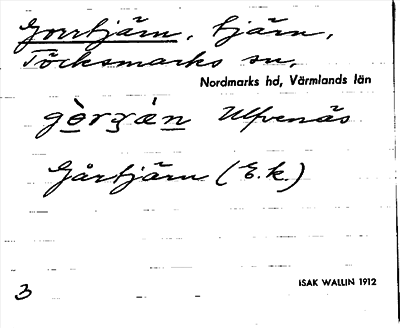 Gorrtjärn, tjärn,
Töcksmarks sn,
Nordmarks hd, Värmlands län
gèrʒán Ulvenäs
Gårtjärn (E.k.)
3
ISAK WALLIN 1912